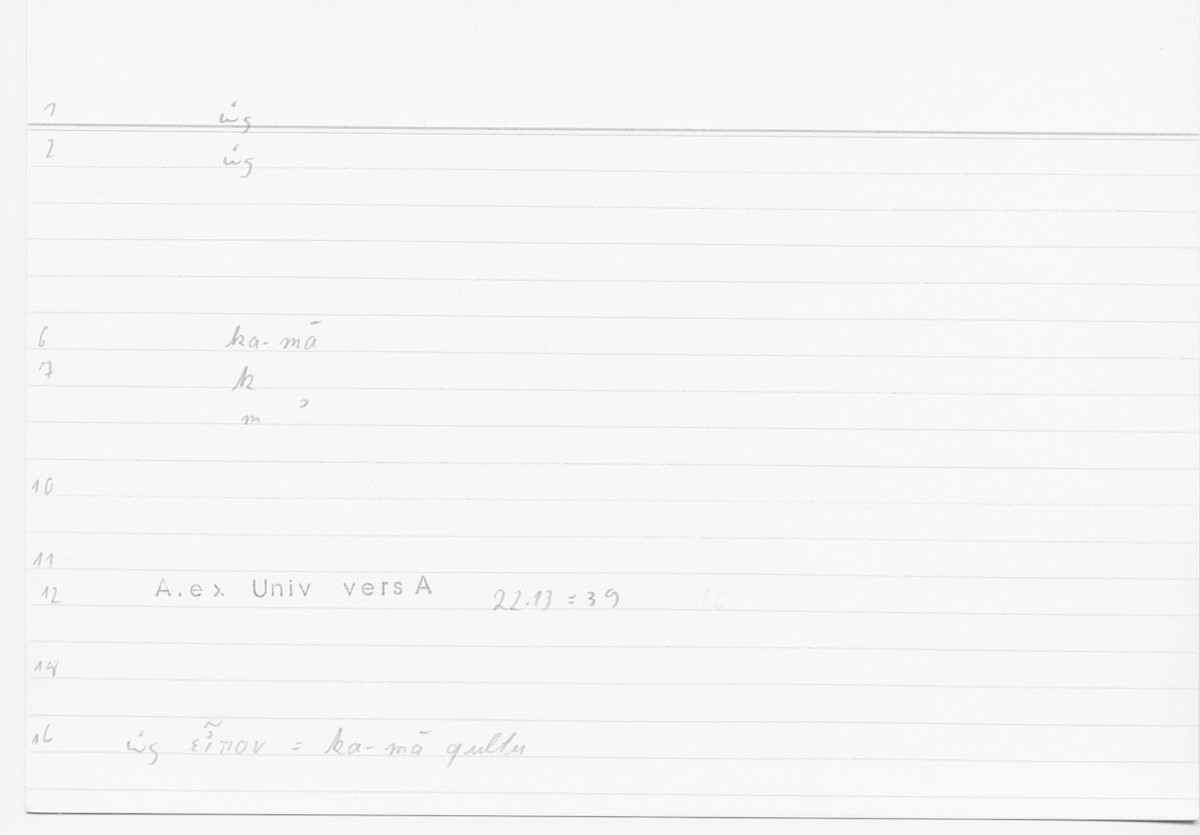 1 ὡς
2 ὡς
6 ka-mā
7 k
m ʾ
10
11
12 A.ex Univ vers A 22.13 = 39
14
16 ὡς εἶπον = ka-mā qultu